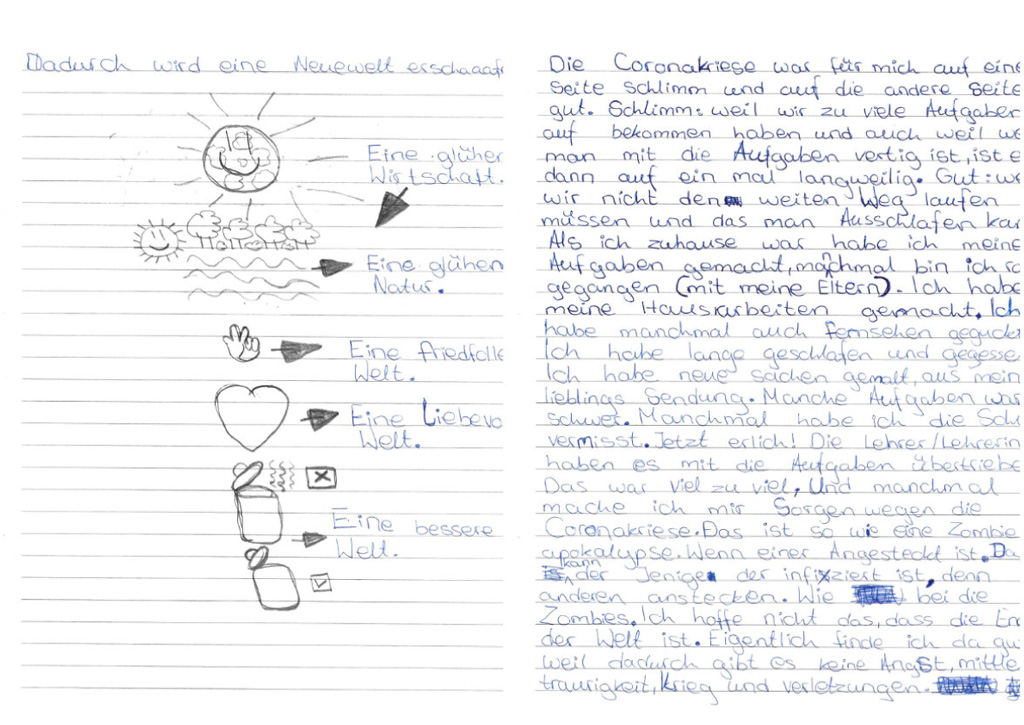 Dadurch wird eine Neuewelt erschaaafr
Eine glüher
Wirtschaft.
Eine glühen
Natur.
Eine friedfolle
Welt.
Eine Liebevo
Welt.
Eine bessere
Welt.
Die Coronakriese war für mich auf eine
Seite schlimm und auf die andere Seite
gut. Schlimm: weil wir zu viele Aufgaben
auf bekommen haben und auch weil we
man mit die Aufgaben vertig ist, ist e
dann auf ein mal langweilig. Gut: we
wir nicht den weiten Weg laufen
müssen und das man Ausschlafen kan
Als ich zuhause war habe ich meine
Aufgaben gemacht, manchmal bin ich ra
gegangen (mit meine Eltern). Ich habe
meine Hausarbeiten gemacht. Ich
habe manchmal auch fernsehen geguckt
Ich habe lange geschlafen und gegesse
Ich habe neue sachen gemalt, aus mein
lieblings Sendung. Manche Aufgaben war
schwer. Manchmal habe ich die Schu
vermisst. Jetzt erlich! Die Lehrer/Lehrerin
haben es mit die Aufgaben übertriebe
Das war viel zu viel, Und manchmal
mache ich mir Sorgen wegen die
Coronakriese. Das ist so wie eine Zombie
apokalypse. Wenn einer Angesteckt ist. Da
kann der Jenige der infixziert ist, denn
anderen anstecken. Wie bei die
Zombies. Ich hoffe nicht das, dass die En
der Welt ist. Eigentlich finde ich da gu
weil dadurch gibt es keine Angst, mittle
traurigkeit, Krieg und verletzungen.